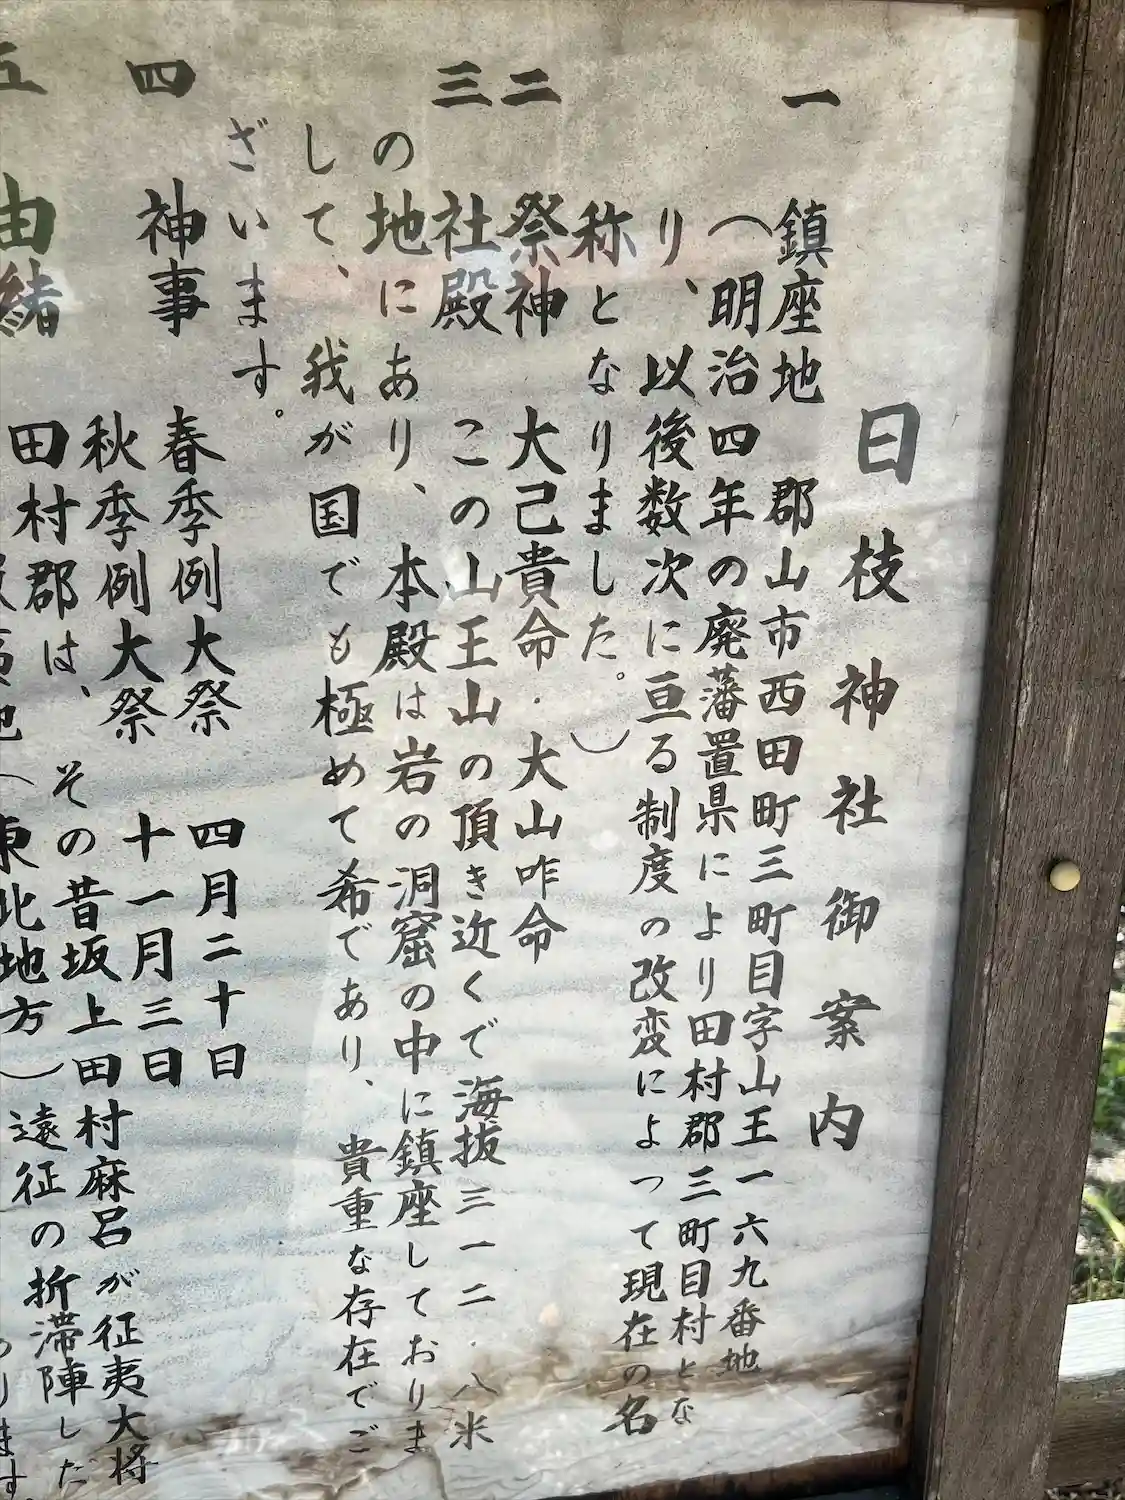 日枝神社御案内
一 鎮座地 郡山市西田町三町目字山王一六九番地
（明治四年の廃藩置県により田村郡三町目村とな
り、以後数次に亘る制度の改変によって現在の名
称となりました。）
二 祭神 大己貴命・大山咋命
三 社殿 この山王山の頂き近くで海抜三一二・八米
の地にあり、本殿は岩の洞窟の中に鎮座しておりま
して、我が国でも極めて希であり、貴重な存在でご
ざいます。
四 神事 春季例大祭 四月二十日
秋季例大祭 十一月三日
五 由緒 田村郡は、その昔坂上田村麻呂が征夷大将
東北地方）遠征の折滞陣した